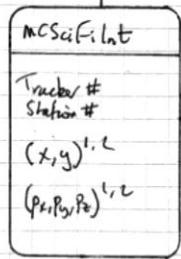 MCSciFiInt
Tracker #
Station #
(x,y)^1,2
(Px,Py,Pz)^1,2